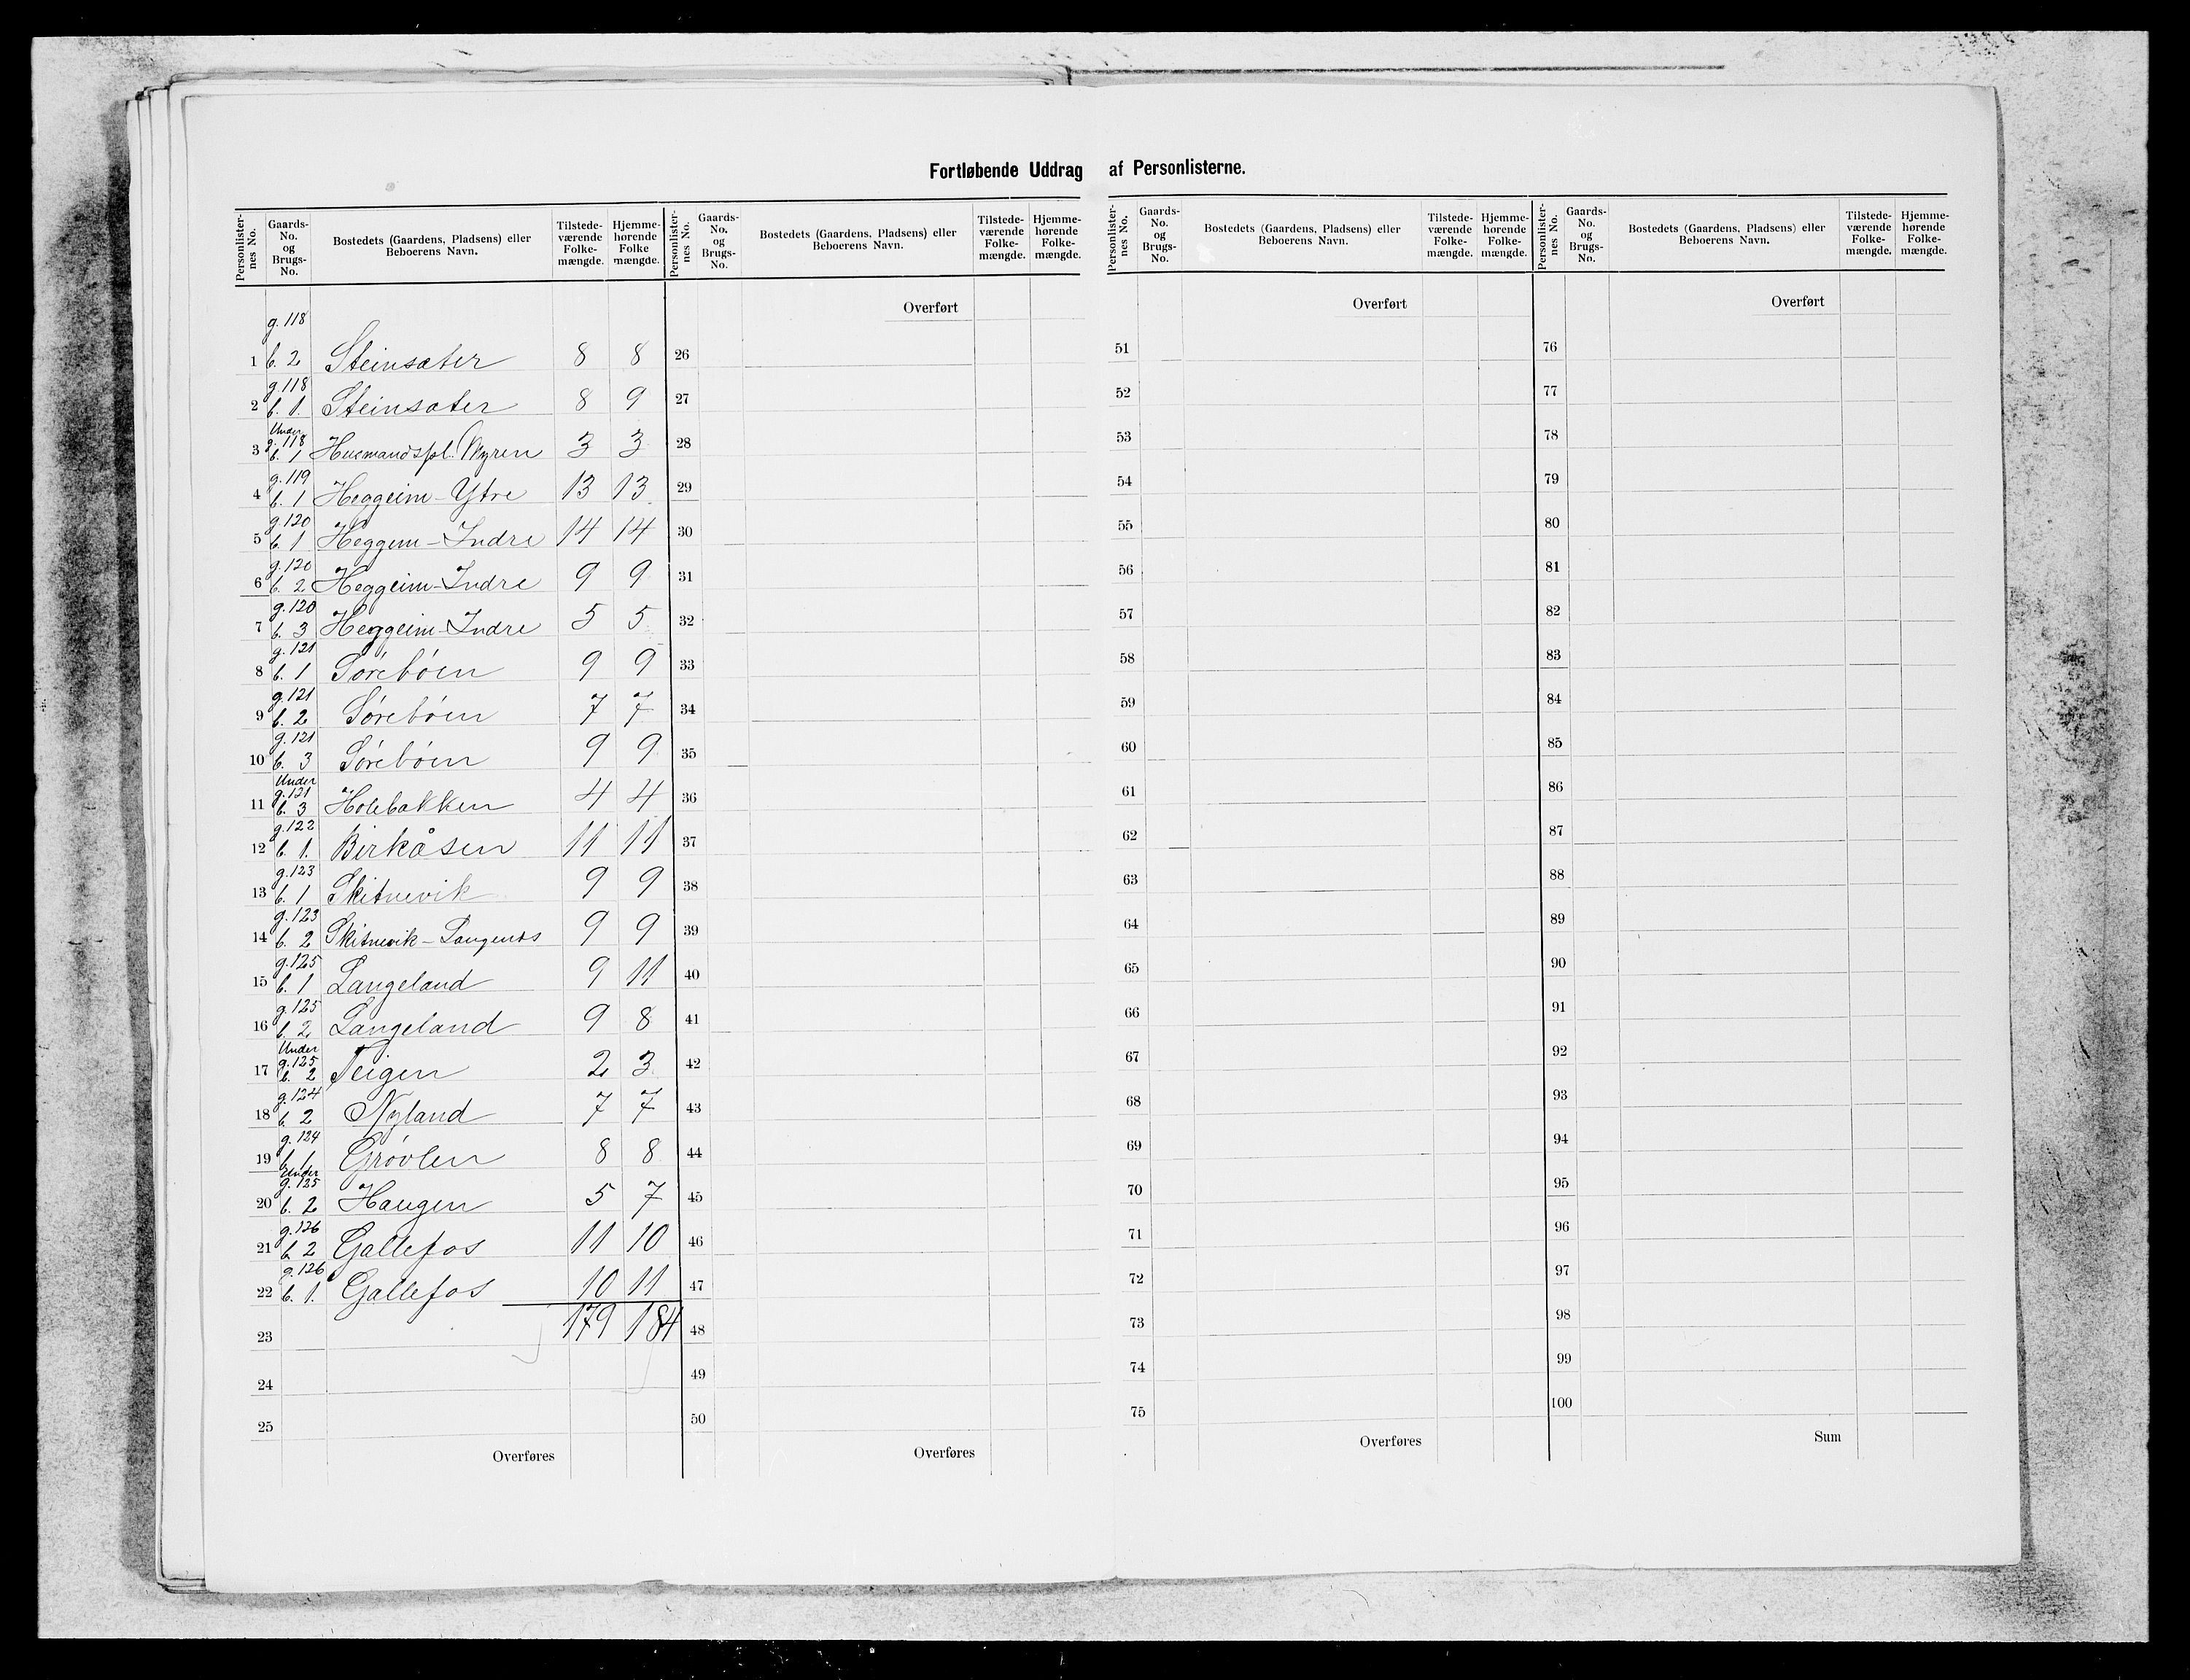 Fortløbende Uddrag af Personlisterne.
Personlister-nes No. | Gaards-No. og Brugs-No. | Bostedets (Gaardens, Pladsens) eller Beboerens Navn. | Tilstede-værende Folke-mængde. | Hjemme-hørende Folke mængde.
g. 118
1 b. 2 Steinsæter 8 8
g. 118
2 b. 1. Steinsæter 8 9
Under g. 118
3 b. 1 Husmandspl. Myren 3 3
g. 119
4 b. 1 Heggeim - Ytre 13 13
g. 120
5 b. 1 Heggem - Indre 14 14
g. 120
6 b. 2 Heggeim - Indre 9 9
g. 120
7 b. 3 Heggeim - Indre 5 5
g. 121
8 b. 1 Sørebøen 9 9
g. 121
9 b. 2 Sørebøen 7 7
g. 121
10 b. 3 Sørebøen 9 9
Under g. 121
11 b. 3 Holebakken 4 4
g. 122
12 b. 1. Birkåsen 11 11
g. 123
13 b. 1 Skitnevik 9 9
g. 123
14 b. 2 Skitnevik - Langenes 9 9
g. 125
15 b. 1 Langeland 9 11
g. 125
16 b. 2 Langeland 9 8
Under g. 125
17 b. 2 Teigen 2 3
g. 124
18 b. 2 Nyland 7 7
g. 124
19 b. 1. Grøvlen 8 8
Under g. 125
20 b. 2 Haugen 5 7
g. 126
21 b. 2 Gallefos 11 10
g. 126
22 b. 1. Gallefos 10 11
23 179 184
24
25
Overføres
Personlister-nes No. | Gaards-No. og Brugs-No. | Bostedets (Gaardens, Pladsens) eller Beboerens Navn. | Tilstede-værende Folke-mængde. | Hjemme-hørende Folke-mængde.
Overført
26
27
28
29
30
31
32
33
34
35
36
37
38
39
40
41
42
43
44
45
46
47
48
49
50
Overføres
Personlister-nes No. | Gaards-No. og Brugs-No. | Bostedets (Gaardens, Pladsens) eller Beboerens Navn. | Tilstede-værende Folke-mængde. | Hjemme-hørende Folke-mængde.
Overført
51
52
53
54
55
56
57
58
59
60
61
62
63
64
65
66
67
68
69
70
71
72
73
74
75
Overføres
Personlister-nes No. | Gaards-No. og Brugs-No. | Bostedets (Gaardens, Pladsens) eller Beboerens Navn. | Tilstede-værende Folke-mængde. | Hjemme-hørende Folke-mængde.
Overført
76
77
78
79
80
81
82
83
84
85
86
87
88
89
90
91
92
93
94
95
96
97
98
99
100
Sum